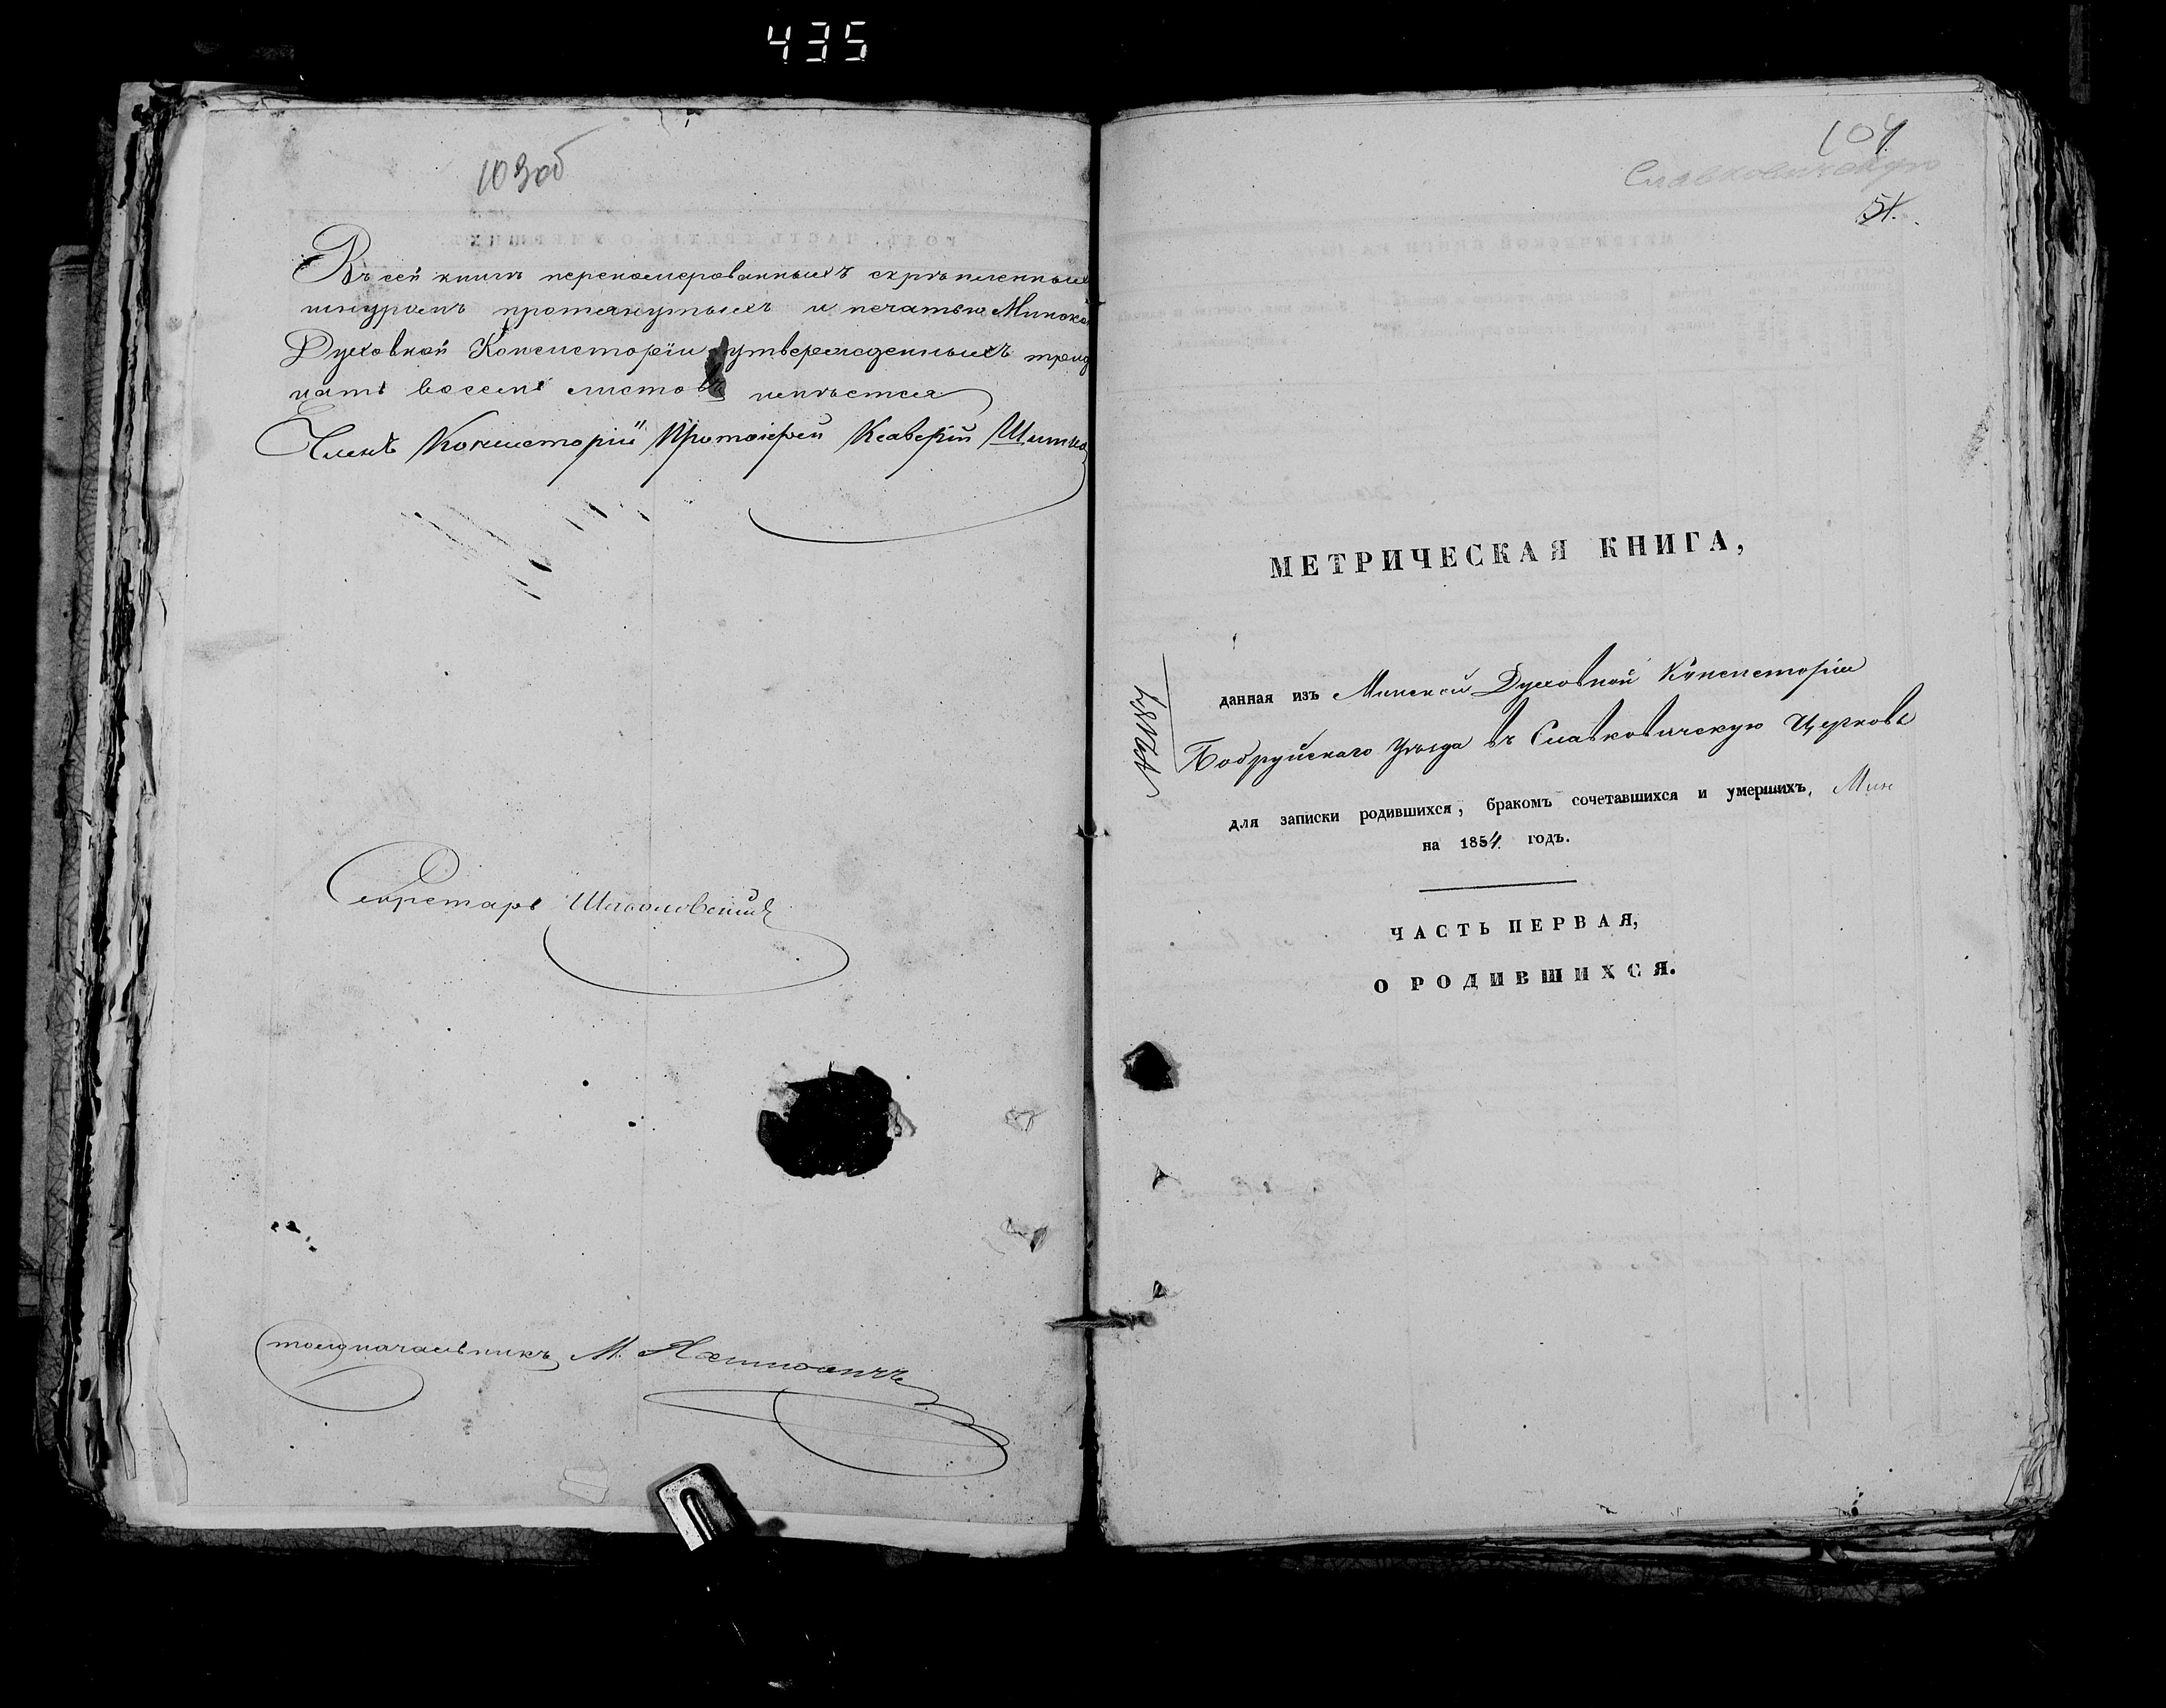 435
103об
Въ сей книгѣ перенумерованныхъ скрѣпленныхъ
шнуромъ протянутыхъ и печатью Минской
Духовной Консисторіи утвержденныхъ трид
цать восемь листовъ имѣется
Членъ Консисторіи Протоіерей Ксаверій
Секретарь
Столоначальникъ М.
104
Славковичскую
51.
МЕТРИЧЕСКАЯ КНИГА,
данная изъ Минской Духовной Консисторіи
Бобруйскаго Уѣзда въ Славковичскую Церковь
для записки родившихся, бракомъ сочетавшихся и умершихъ, Мин
на 1854 годъ.
ЧАСТЬ ПЕРВАЯ,
О РОДИВШИХСЯ.